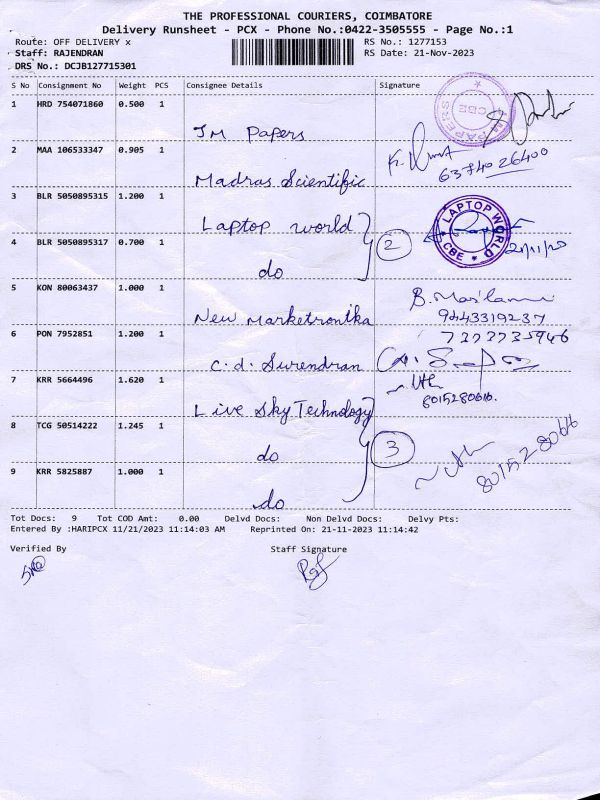 THE PROFESSIONAL COURIERS, COIMBATORE
Delivery Runsheet - PCX - Phone No.:0422-3505555 - Page No.:1
Route: OFF DELIVERY x RS No.: 1277153
Staff: RAJENDRAN RS Date: 21-Nov-2023
DRS No.: DCJB127715301
S No Consignment No Weight PCS Consignee Details Signature
1 HRD 754071860 0.500 1 JM Papers
JM PAPERS CBE
2 MAA 106533347 0.905 1 Madras Scientific K.
6374026400
3 BLR 5050895315 1.200 1 Laptop world
LAPTOP WORLD CBE
2
4 BLR 5050895317 0.700 1 do
5 KON 80063437 1.000 1 New Marketronika
9443319237
6 PON 7952851 1.200 1 C.d. Surendran
7373735946
7 KRR 5664496 1.620 1 Live Sky Technology
8015280616.
8 TCG 50514222 1.245 1 do
3
9 KRR 5825887 1.000 1 do
Tot Docs: 9 Tot COD Amt: 0.00 Delvd Docs: Non Delvd Docs: Delvy Pts:
Entered By :HARIPCX 11/21/2023 11:14:03 AM Reprinted On: 21-11-2023 11:14:42
Verified By Staff Signature